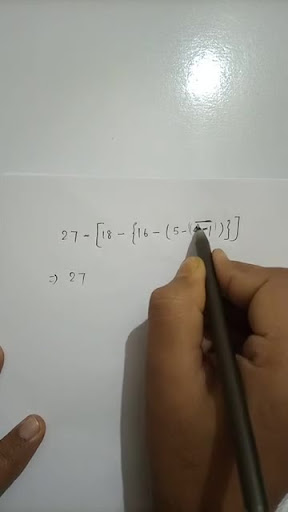 27 - [18 - {16 - (5 - -1)}]
⇒ 27